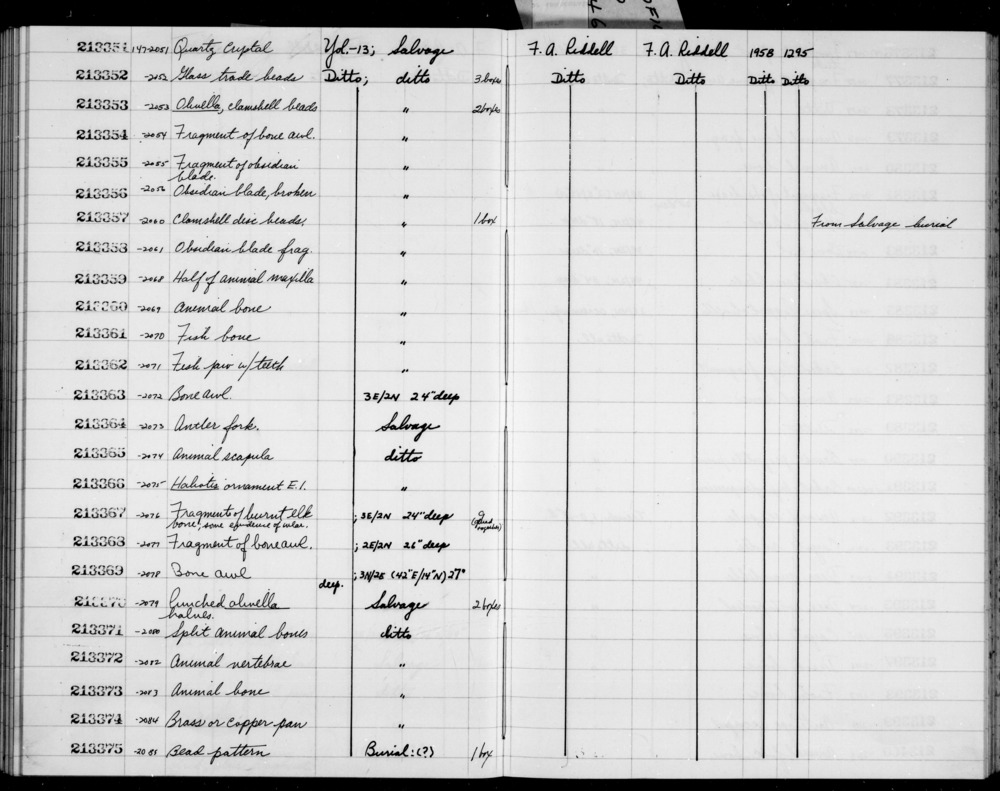 213351 147-2051 Quartz Crystal Yol-13; Salvage F. A. Riddell F. A. Riddell 1958 1295
213352 -2052 Glass trade beads Ditto; ditto 3 boxes Ditto Ditto Ditto Ditto
213353 -2053 Olivella, clamshell beads " 2 boxes
213354 -2054 Fragment of bone awl. "
213355 -2055 Fragment of obsidian
blade. "
213356 -2056 Obsidian blade, broken "
213357 -2060 Clamshell disc beads. " 1 box From Salvage burial
213358 -2061 Obsidian blade frag. "
213359 -2068 Half of animal maxilla "
213360 -2069 Animal bone "
213361 -2070 Fish bone "
213362 -2071 Fish jaw w/ teeth "
213363 -2072 Bone awl. 3E/2N 24" deep
213364 -2073 Antler fork. Salvage
213365 -2074 Animal scapula ditto
213366 -2075 Haliotis ornament E.1. "
213367 -2076 Fragments of burnt elk ; 3E/2N 24" deep 9
bone, some evidence of wear.
213368 -2077 Fragment of bone awl. ; 2E/2N 26" deep
213369 -2078 Bone awl ; 3N/2E (42"E/14"N) 27"
deep.
213370 -2079 Punched olivella Salvage 2 boxes
halves.
213371 -2080 Split animal bones ditto
213372 -2082 Animal vertebrae "
213373 -2083 Animal bone "
213374 -2084 Brass or copper pan "
213375 -2085 Bead pattern Burial: (?) 1 box